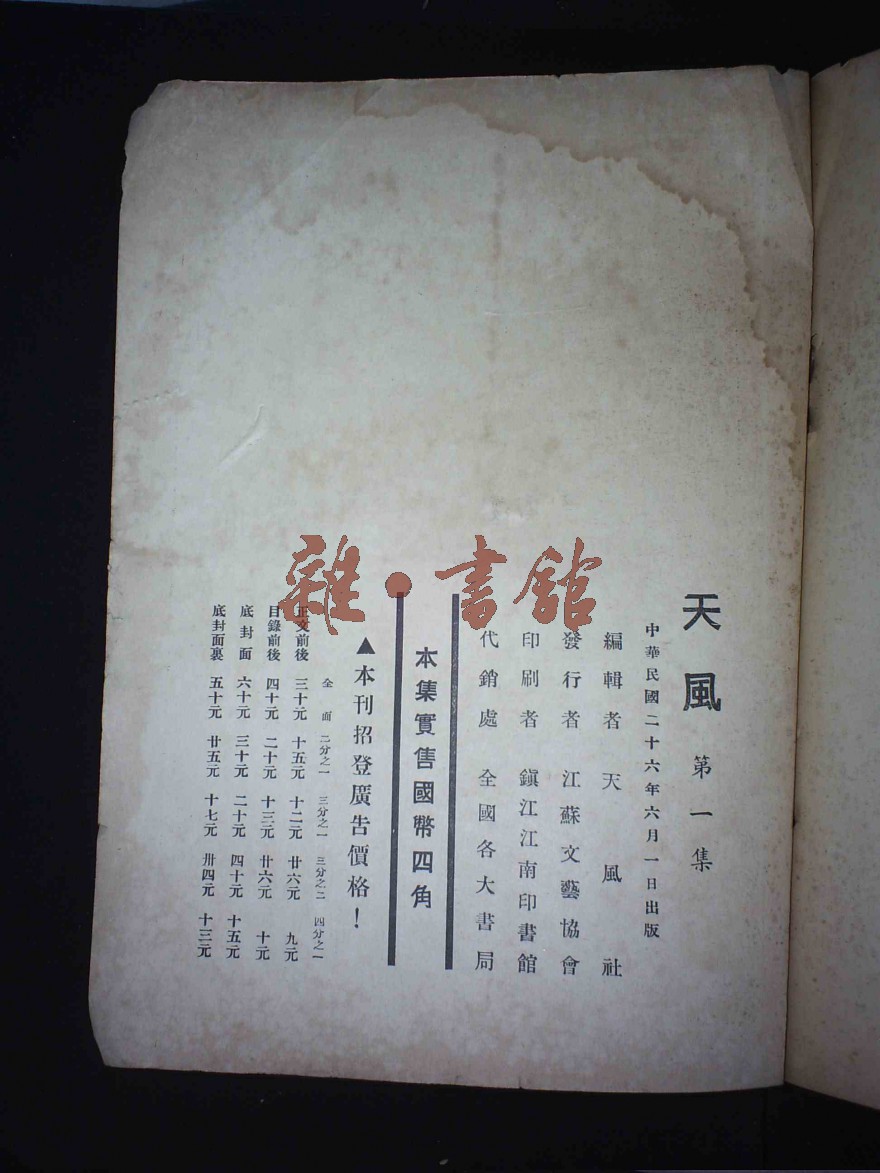 天風 第一集
中華民國二十六年六月一日出版
編輯者 天風社
發行者 江蘇文藝協會
印刷者 鎭江江南印書館
代銷處 全國各大書局
本集實售國幣四角
▲本刊招登廣告價格!
全面 二分之一 三分之一 三分之二 四分之一
正文前後 三十元 十五元 十二元 廿六元 九元
目錄前後 四十元 二十元 十三元 廿六元 十元
底封面 六十元 三十元 二十元 四十元 十五元
底封面裏 五十元 廿五元 十七元 卅四元 十三元
雜·書館